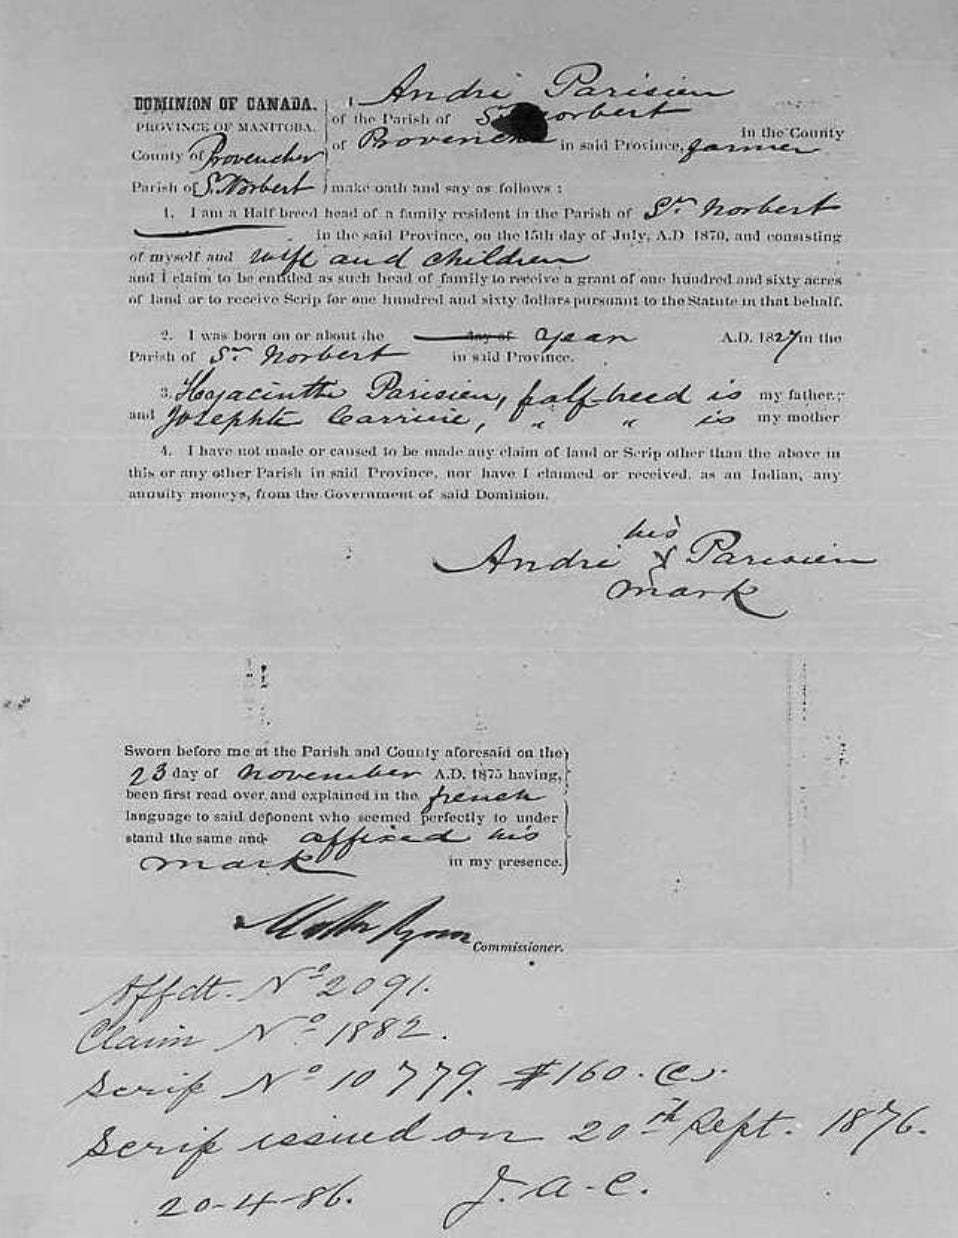 DOMINION OF CANADA. I André Parisien
PROVINCE OF MANITOBA. of the Parish of St. Norbert in the County
County of Provencher of Provencher in said Province, farmer
Parish of St. Norbert make oath and say as follows :
1. I am a Half breed head of a family resident in the Parish of St. Norbert
in the said Province, on the 15th day of July, A.D 1870, and consisting
of myself and wife and children
and I claim to be entitled as such head of family to receive a grant of one hundred and sixty acres
of land or to receive Scrip for one hundred and sixty dollars pursuant to the Statute in that behalf.
2. I was born on or about the day of year A.D. 1827 in the
Parish of St. Norbert in said Province.
3. Hyacinthe Parisien, half-breed is my father;
and Josephte Carriere, " " is my mother
4. I have not made or caused to be made any claim of land or Scrip other than the above in
this or any other Parish in said Province, nor have I claimed or received, as an Indian, any
annuity moneys, from the Government of said Dominion.
his
André X Parisien
mark
Sworn before me at the Parish and County aforesaid on the
23 day of November A.D. 1875 having,
been first read over and explained in the french
language to said deponent who seemed perfectly to under
stand the same and affixed his
mark in my presence.
Matt Ryan
Commissioner.
Affdt. No 2091.
Claim No 1882.
Scrip No 10779. $160.
Scrip issued on 20th Sept. 1876.
20-4-86. J.A.C.